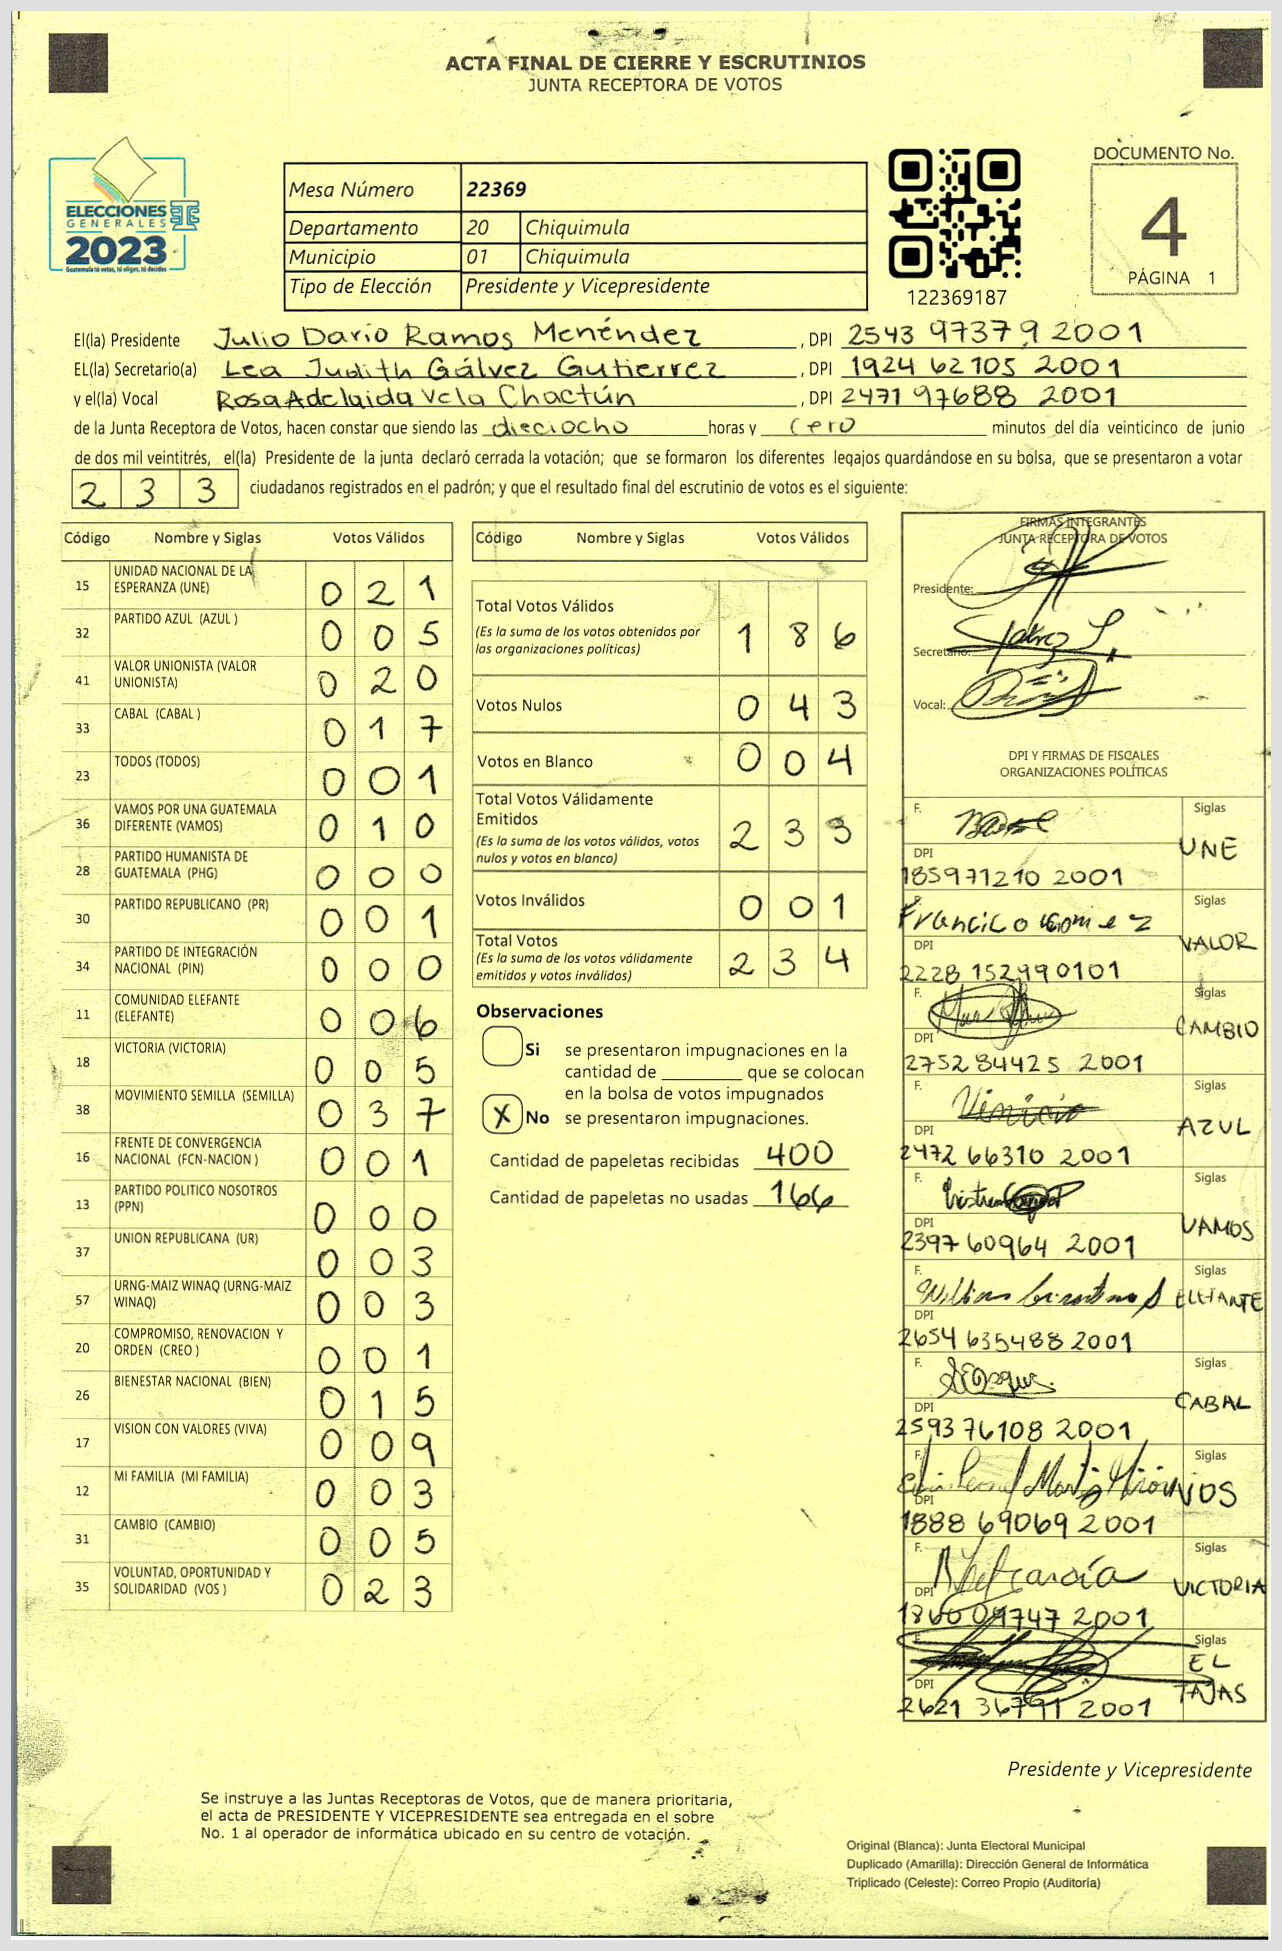 ACTA FINAL DE CIERRE Y ESCRUTINIOS
JUNTA RECEPTORA DE VOTOS
ELECCIONES
GENERALES
2023
Guatemala tú votas, tú eliges, tú decides
Mesa Número 22369
Departamento 20 Chiquimula
Municipio 01 Chiquimula
Tipo de Elección Presidente y Vicepresidente
122369187
DOCUMENTO No.
4
PÁGINA 1
El(la) Presidente Julio Darío Ramos Menéndez , DPI 2543 97379 2001
EL(la) Secretario(a) Lea Judith Gálvez Gutierrez , DPI 1924 62105 2001
y el(la) Vocal Rosa Adelaida Vela Chactún , DPI 2471 97688 2001
de la Junta Receptora de Votos, hacen constar que siendo las dieciocho horas y cero minutos del día veinticinco de junio
de dos mil veintitrés, el(la) Presidente de la junta declaró cerrada la votación; que se formaron los diferentes legajos guardándose en su bolsa, que se presentaron a votar
2 3 3 ciudadanos registrados en el padrón; y que el resultado final del escrutinio de votos es el siguiente:
Código Nombre y Siglas Votos Válidos
15 UNIDAD NACIONAL DE LA ESPERANZA (UNE) 0 2 1
32 PARTIDO AZUL (AZUL ) 0 0 5
41 VALOR UNIONISTA (VALOR UNIONISTA) 0 2 0
33 CABAL (CABAL ) 0 1 7
23 TODOS (TODOS) 0 0 1
36 VAMOS POR UNA GUATEMALA DIFERENTE (VAMOS) 0 1 0
28 PARTIDO HUMANISTA DE GUATEMALA (PHG) 0 0 0
30 PARTIDO REPUBLICANO (PR) 0 0 1
34 PARTIDO DE INTEGRACIÓN NACIONAL (PIN) 0 0 0
11 COMUNIDAD ELEFANTE (ELEFANTE) 0 0 6
18 VICTORIA (VICTORIA) 0 0 5
38 MOVIMIENTO SEMILLA (SEMILLA) 0 3 7
16 FRENTE DE CONVERGENCIA NACIONAL (FCN-NACION ) 0 0 1
13 PARTIDO POLITICO NOSOTROS (PPN) 0 0 0
37 UNION REPUBLICANA (UR) 0 0 3
57 URNG-MAIZ WINAQ (URNG-MAIZ WINAQ) 0 0 3
20 COMPROMISO, RENOVACION Y ORDEN (CREO ) 0 0 1
26 BIENESTAR NACIONAL (BIEN) 0 1 5
17 VISION CON VALORES (VIVA) 0 0 9
12 MI FAMILIA (MI FAMILIA) 0 0 3
31 CAMBIO (CAMBIO) 0 0 5
35 VOLUNTAD, OPORTUNIDAD Y SOLIDARIDAD (VOS ) 0 2 3
Código Nombre y Siglas Votos Válidos
Total Votos Válidos 1 8 6
(Es la suma de los votos obtenidos por
las organizaciones políticas)
Votos Nulos 0 4 3
Votos en Blanco 0 0 4
Total Votos Válidamente
Emitidos 2 3 3
(Es la suma de los votos válidos, votos
nulos y votos en blanco)
Votos Inválidos 0 0 1
Total Votos 2 3 4
(Es la suma de los votos válidamente
emitidos y votos inválidos)
Observaciones
Si se presentaron impugnaciones en la
cantidad de ________ que se colocan
en la bolsa de votos impugnados
X No se presentaron impugnaciones.
Cantidad de papeletas recibidas 400
Cantidad de papeletas no usadas 166
FIRMAS INTEGRANTES
JUNTA RECEPTORA DE VOTOS
Presidente:
Secretario:
Vocal:
DPI Y FIRMAS DE FISCALES
ORGANIZACIONES POLÍTICAS
F. Siglas
UNE
DPI
185971210 2001
Siglas
VALOR
DPI
2228 152990101
F. Siglas
CAMBIO
DPI
2752 84425 2001
F. Vinicio Siglas
AZUL
DPI
2472 66310 2001
F. Siglas
VAMOS
DPI
2397 60964 2001
F. Siglas
DPI
2654 635488 2001
F. Siglas
CABAL
DPI
2593 76108 2001
F. Siglas
VOS
DPI
1888 69069 2001
F. Siglas
VICTORIA
DPI
2001
F. Siglas
EL
TAJAS
DPI
2621 36791 2001
Presidente y Vicepresidente
Se instruye a las Juntas Receptoras de Votos, que de manera prioritaria,
el acta de PRESIDENTE Y VICEPRESIDENTE sea entregada en el sobre
No. 1 al operador de informática ubicado en su centro de votación.
Original (Blanca): Junta Electoral Municipal
Duplicado (Amarilla): Dirección General de Informática
Triplicado (Celeste): Correo Propio (Auditoría)